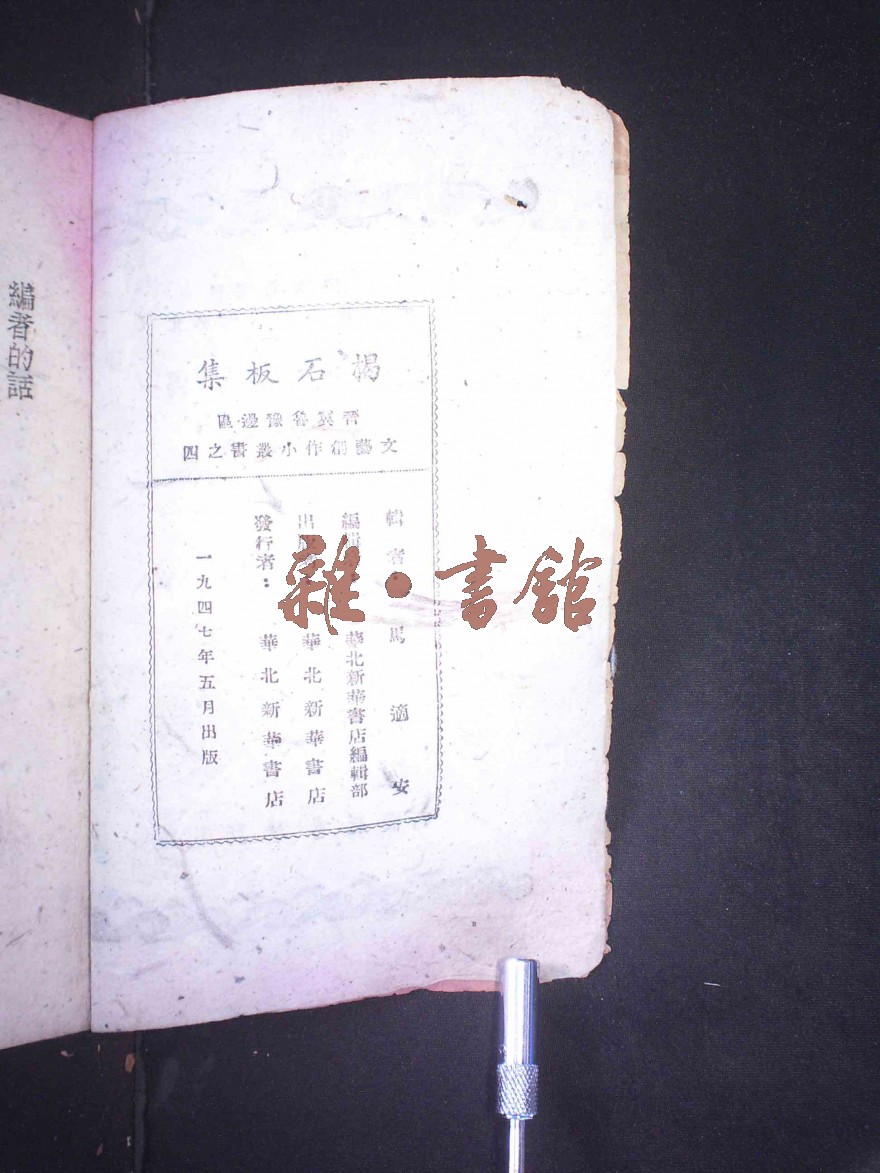 揭石板集
晋冀魯豫邊區
文藝創作小叢書之四
輯者：馬適安
編輯 華北新華書店編輯部
出版 華北新華書店
發行者：華北新華書店
一九四七年五月出版
編者的話
雜·書館